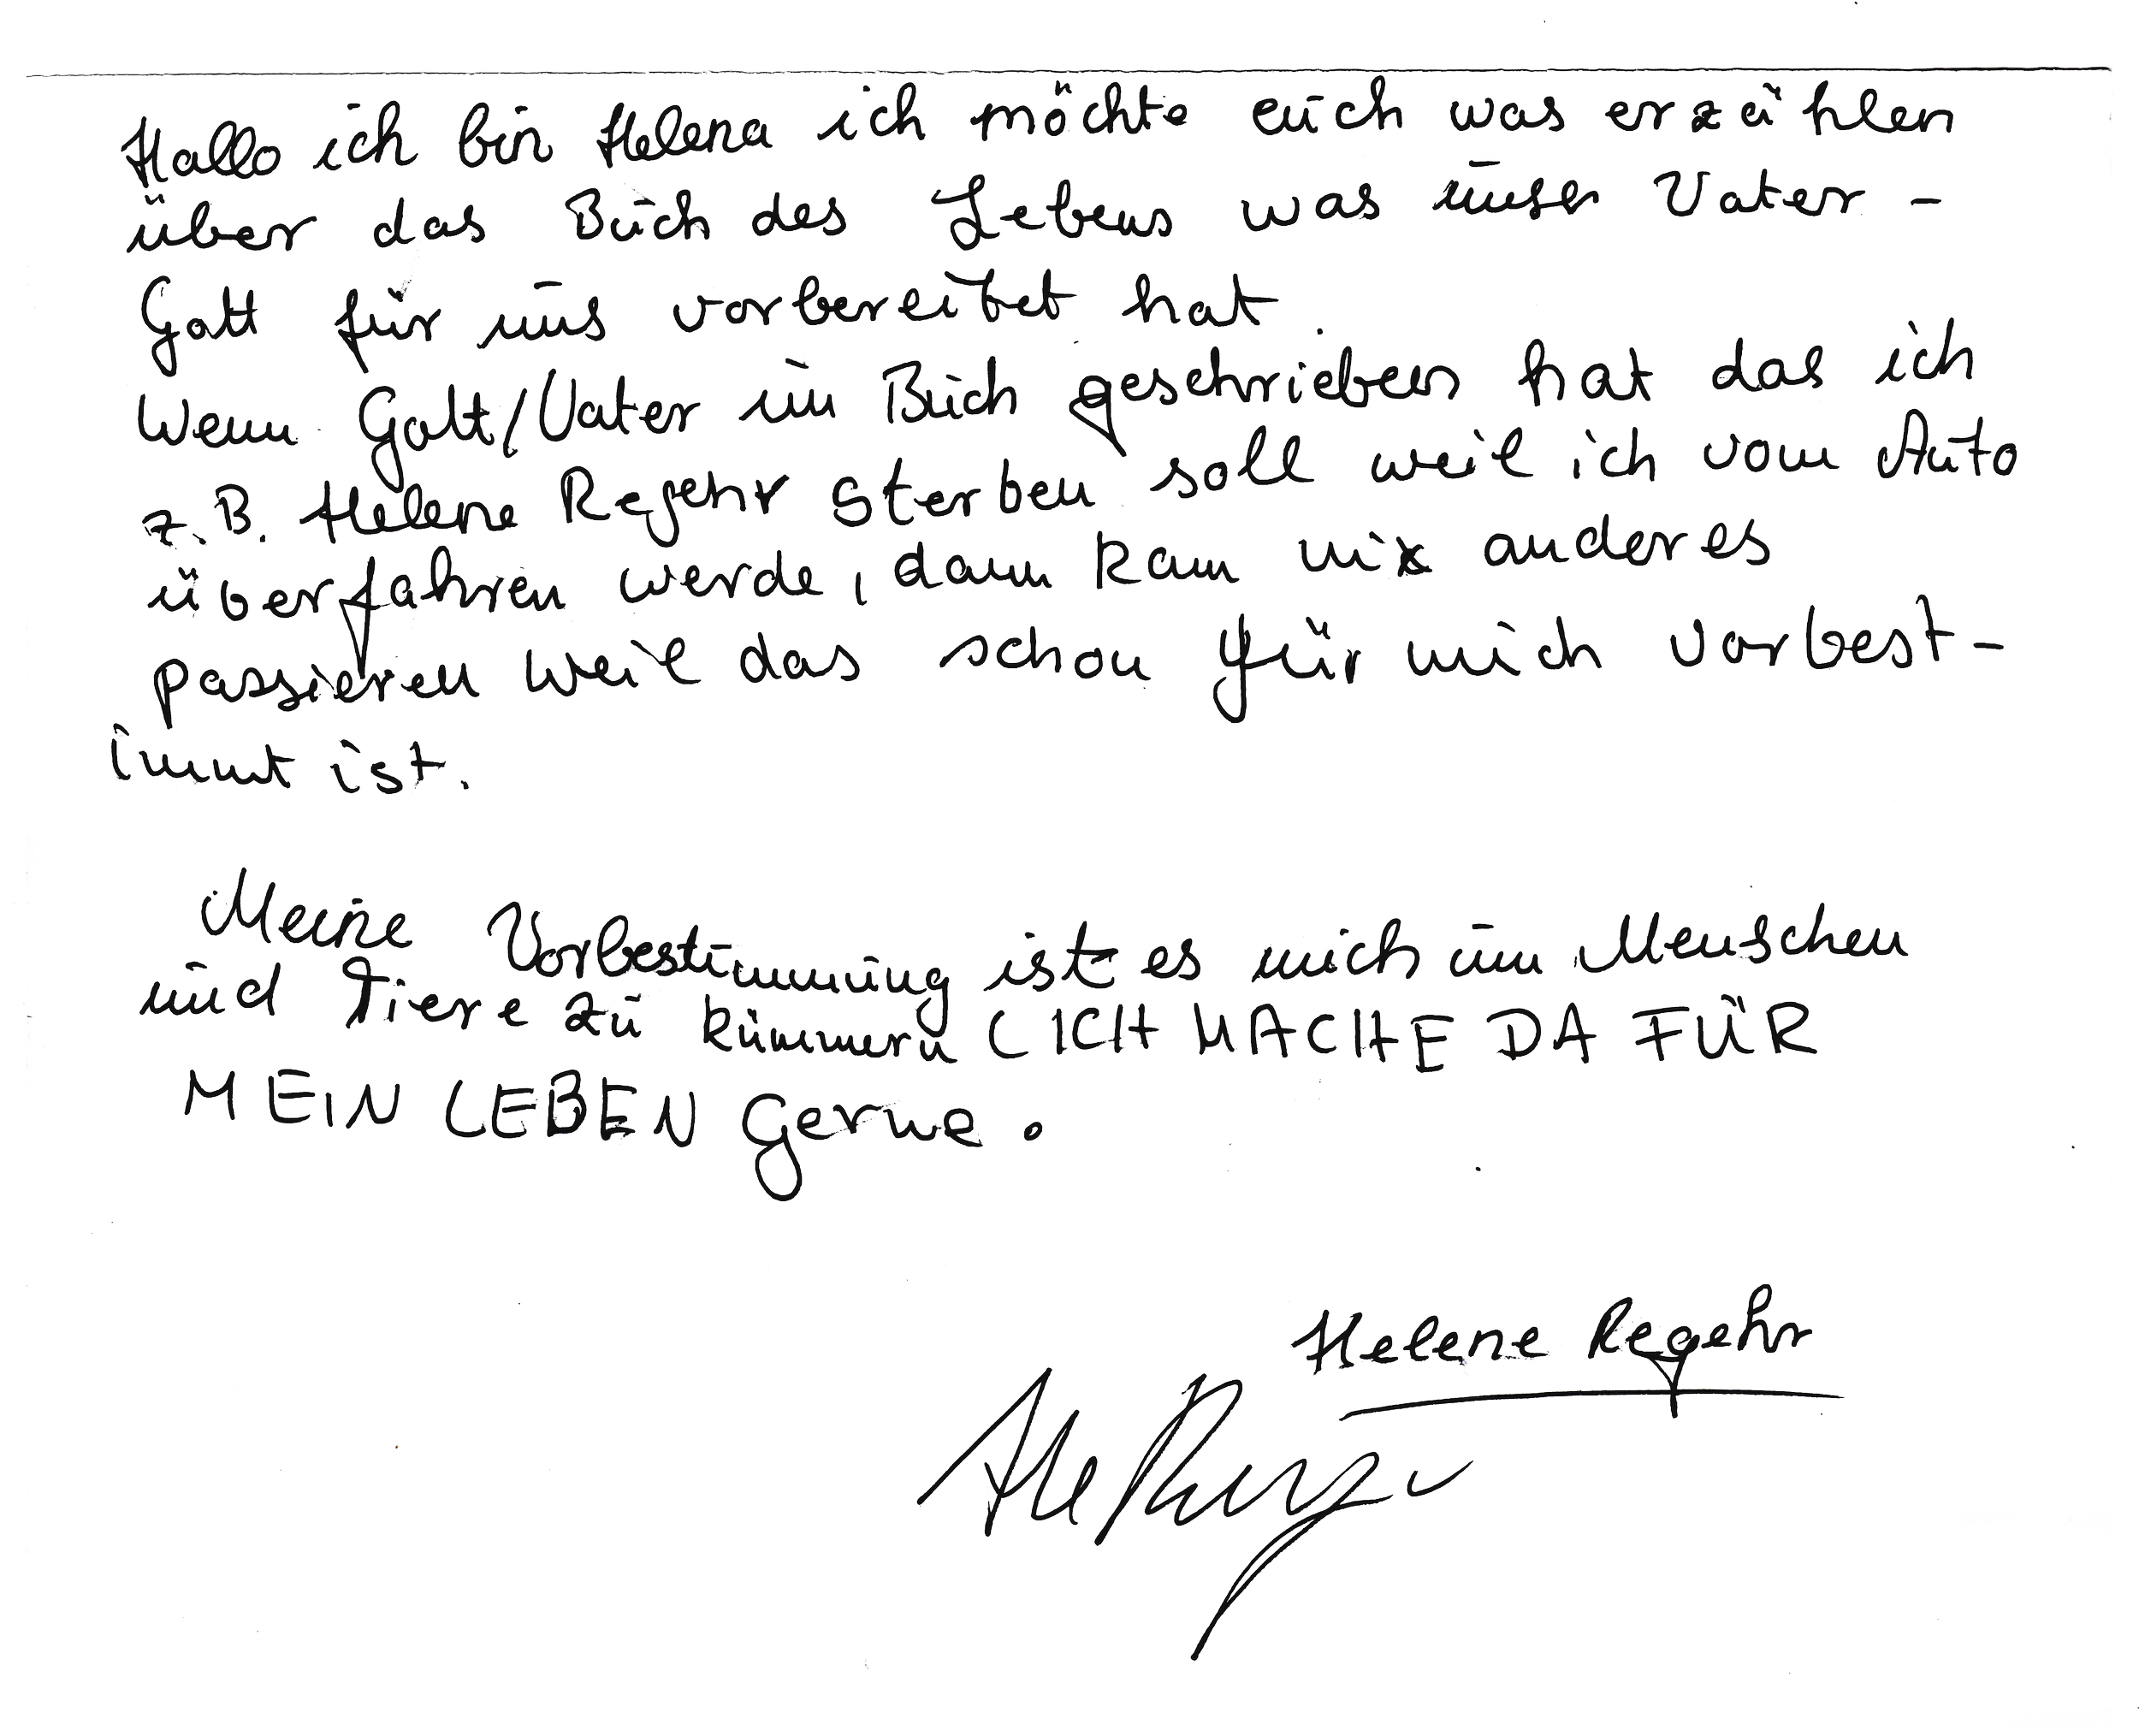 Hallo ich bin Helena ich möchte euch was erzählen
über das Buch des Lebens was unser Vater -
Gott für uns vorbereitet hat
Wenn Gott/Vater im Buch geschrieben hat das ich
z.B. Helene Regehr sterben soll weil ich vom Auto
überfahren werde, dann kann nix anderes
passieren weil das schon für mich vorbest-
immt ist.
Meine Vorbestimmung ist es mich um Menschen
und Tiere zu kümmern (ICH MACHE DA FÜR
MEIN LEBEN Gerne.
Helene Regehr